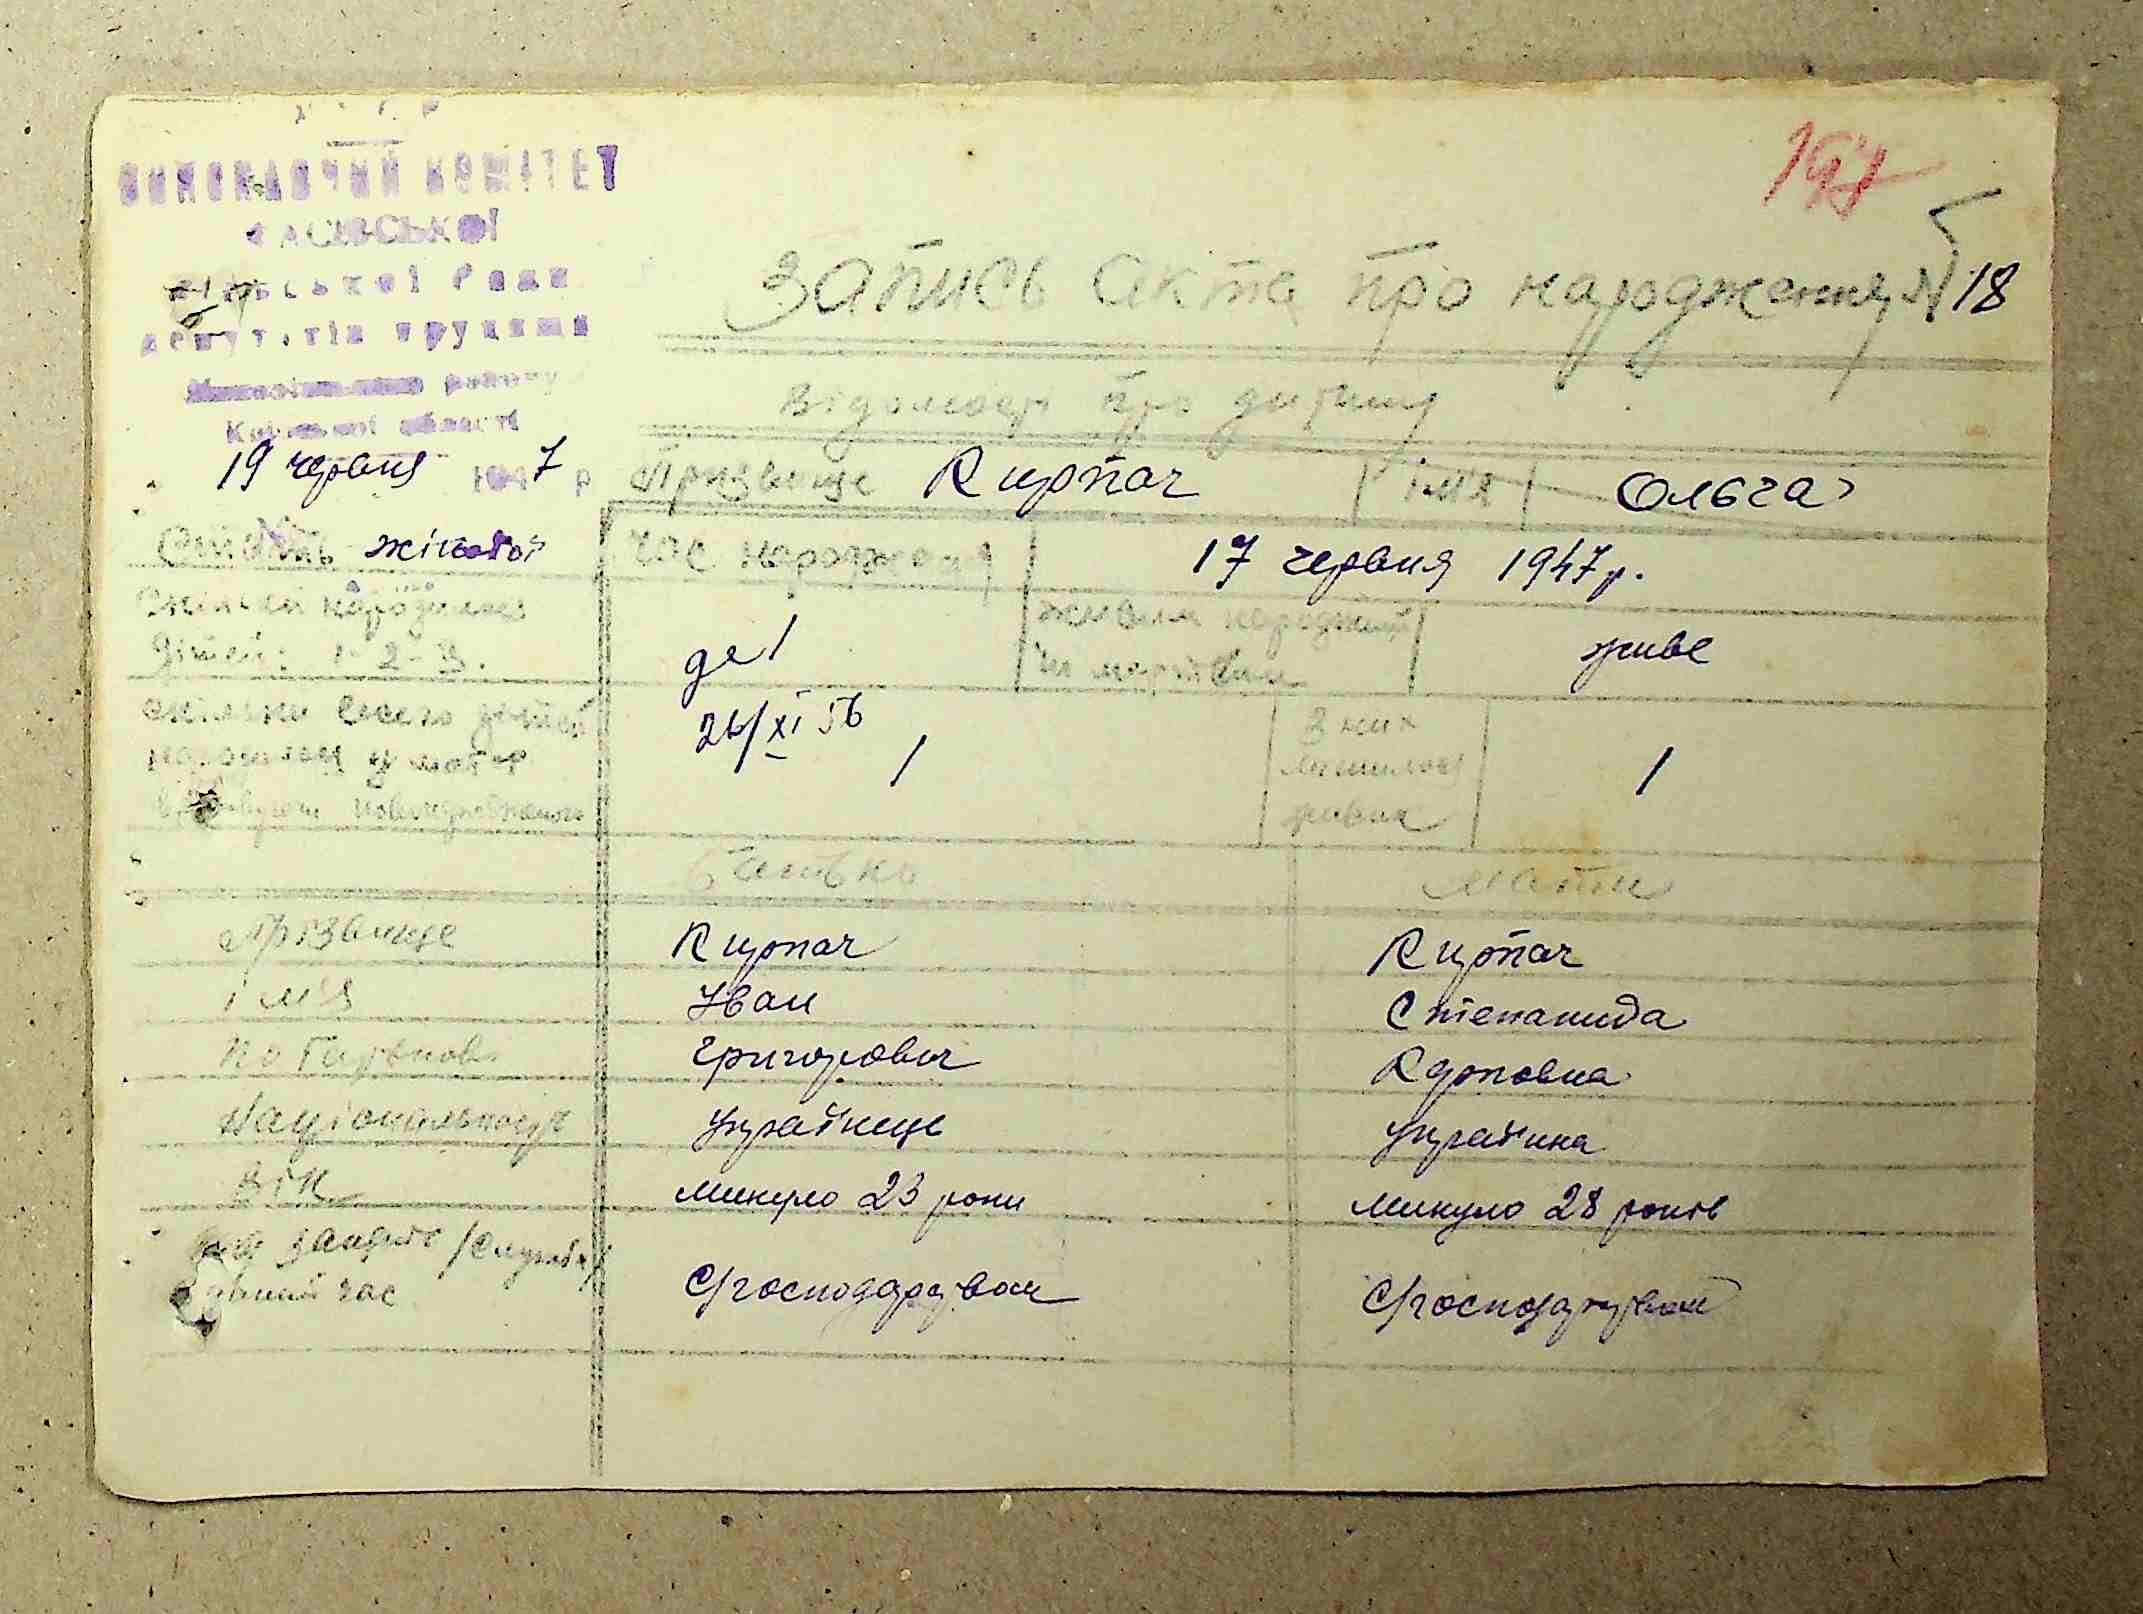 ВИКОНАВЧИЙ КОМІТЕТ
сільської Ради
депутатів трудящих
району
області
19 червня 1947 р
Запис акта про народження № 18
Відомості про дитину
Призвище Кирпач ім'я Ольга
жіночої
Час народження 17 червня 1947 р.
Скільки народилось
дітей: 1-2-3.
1
живим народжений
чи мертвим
живе
26/XI 56
скільки всього дітей
народилось у матері
новонародженого
1
З них
лишилось
живих
1
Батько Мати
Прізвище Кирпач Кирпач
ім'я Іван Степанида
по батькові Григорович Карповна
Національність Українець Українка
Вік минуло 23 роки минуло 28 років
занять /служби/
час
С/господарував С/господарував